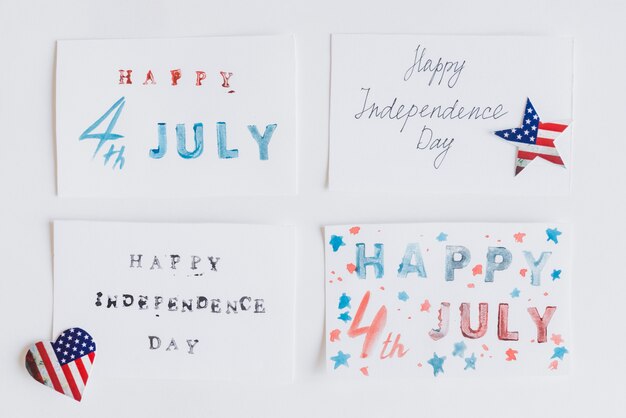 HAPPY
4th JULY
Happy
Independence
Day
HAPPY
INDEPENDENCE
DAY
HAPPY
4th JULY